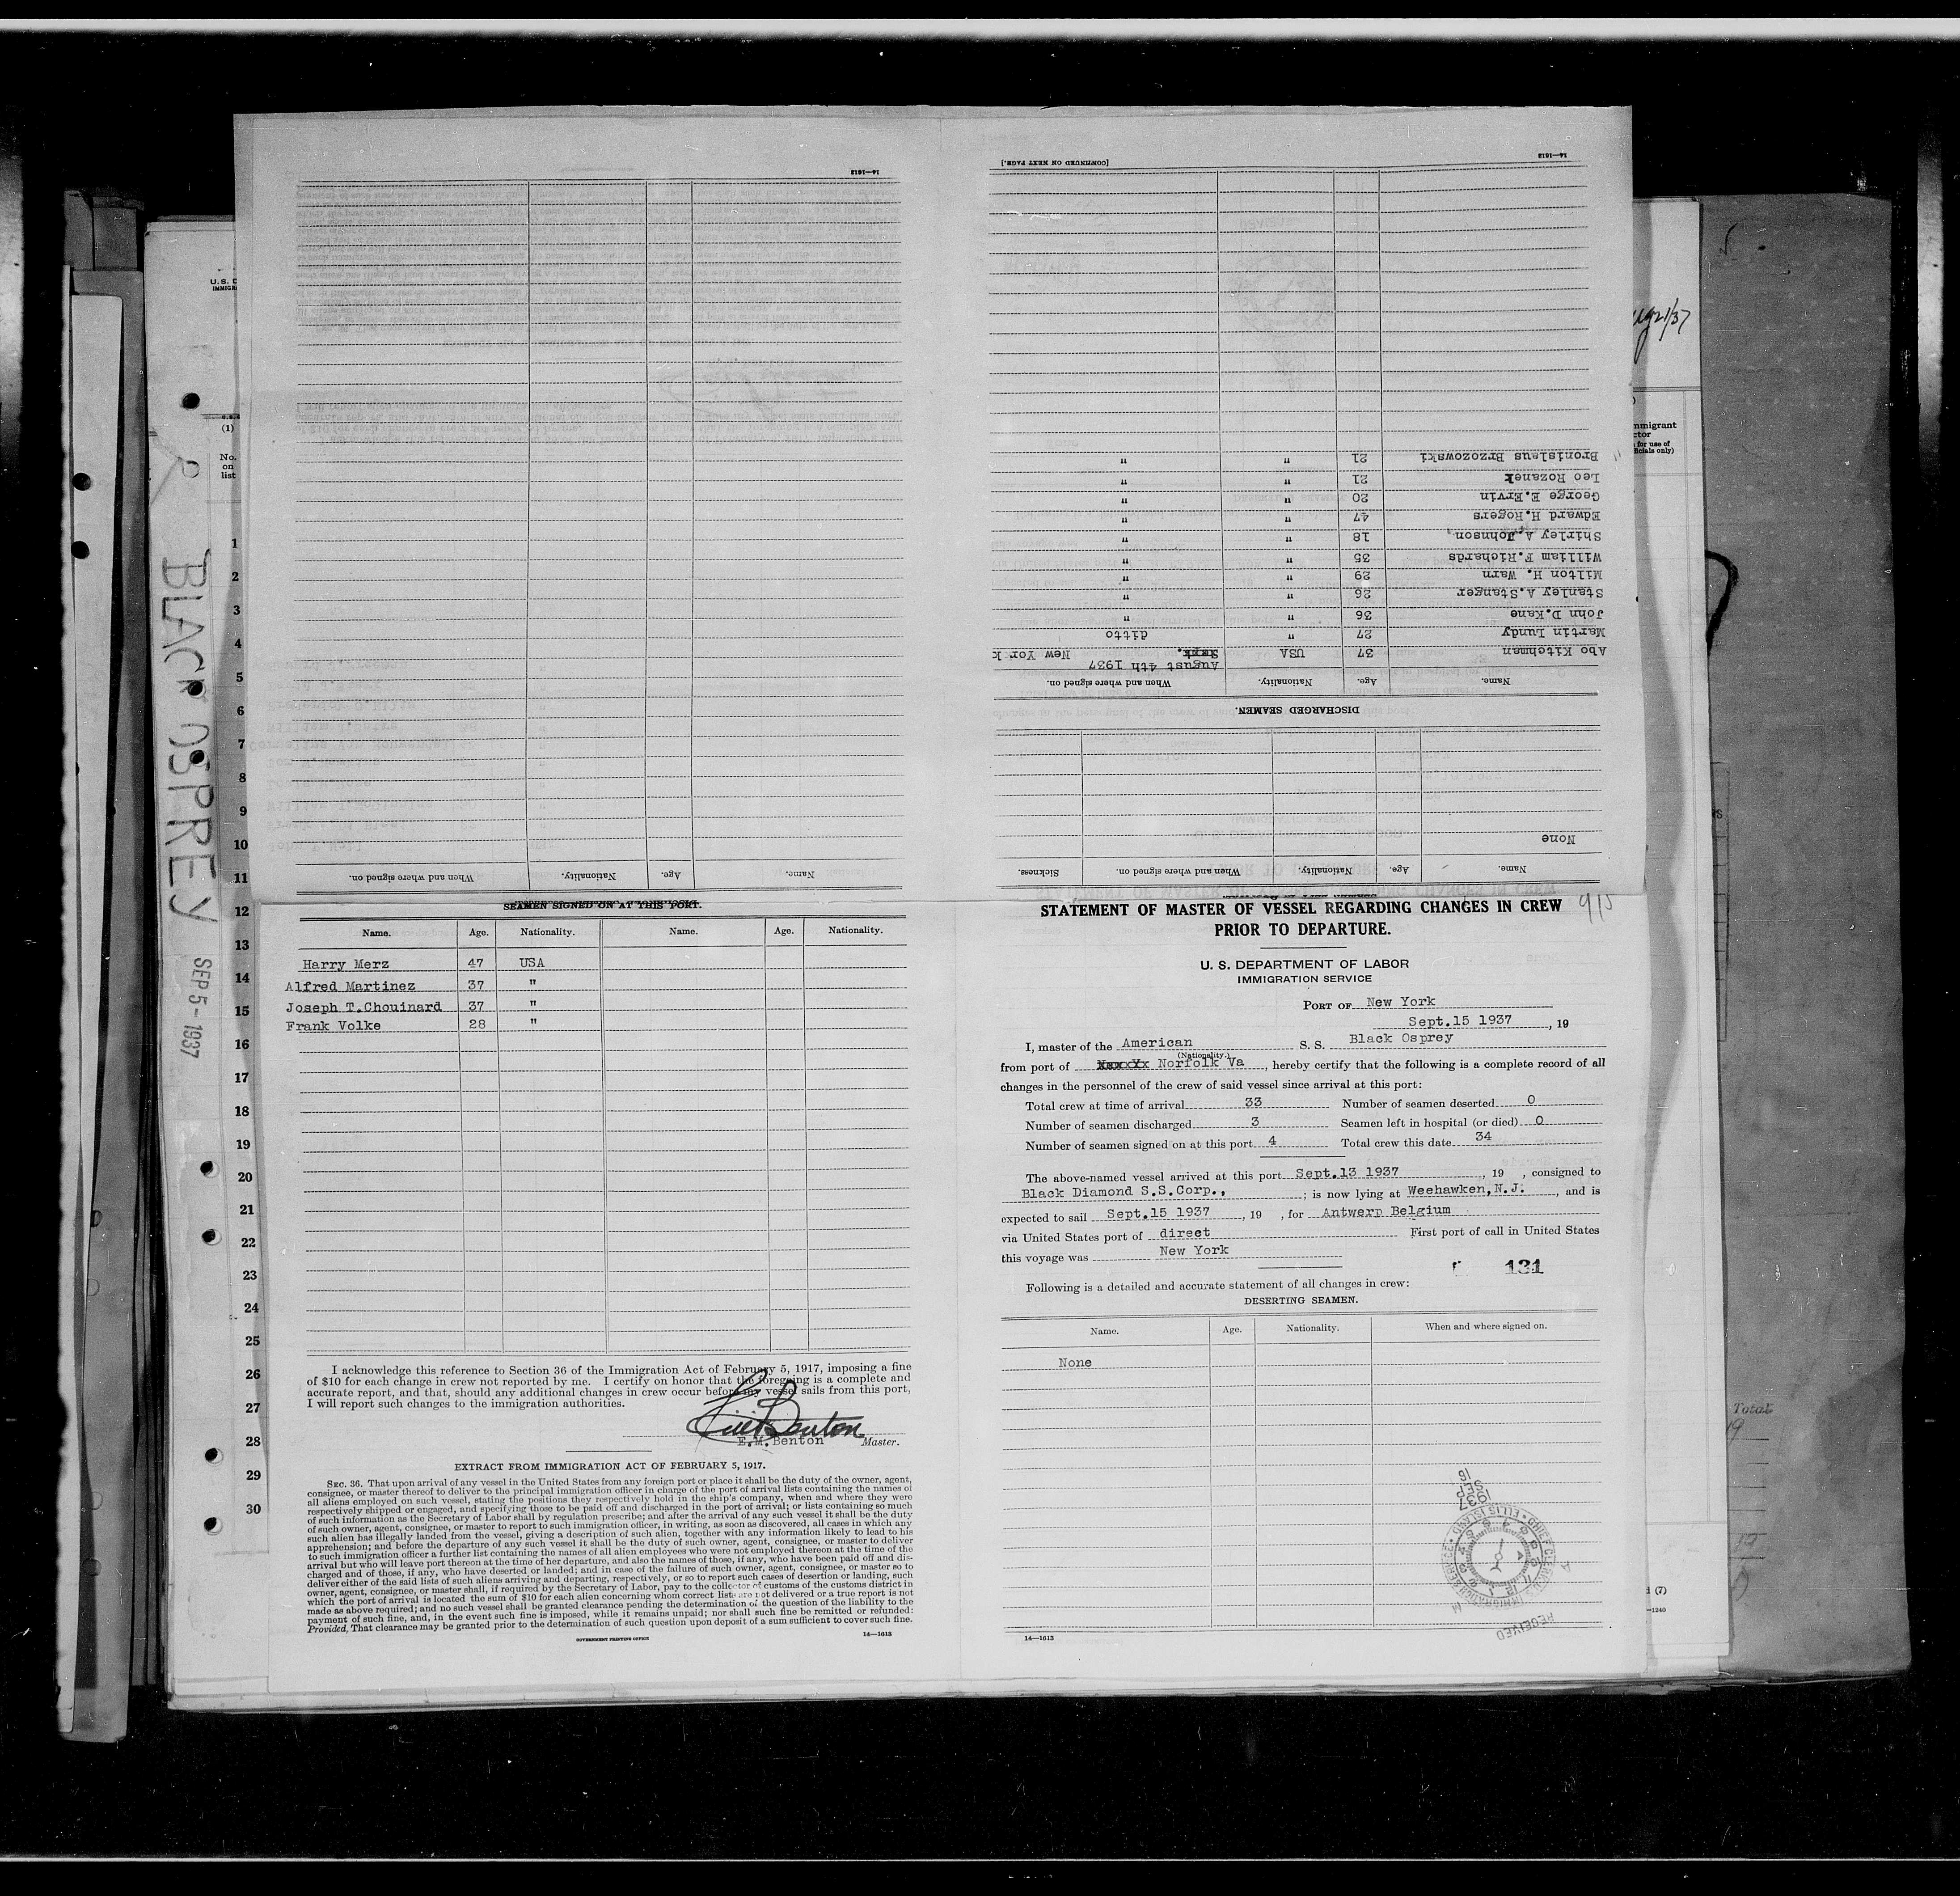 STATEMENT OF MASTER OF VESSEL REGARDING CHANGES IN CREW
PRIOR TO DEPARTURE.
915
U. S. DEPARTMENT OF LABOR
IMMIGRATION SERVICE
PORT OF New York
Sept.15 1937, 19
I, master of the American S. S. Black Osprey
(Nationality.)
from port of Norfolk Va, hereby certify that the following is a complete record of all
changes in the personnel of the crew of said vessel since arrival at this port:
Total crew at time of arrival 33 Number of seamen deserted 0
Number of seamen discharged 3 Seamen left in hospital (or died) 0
Number of seamen signed on at this port 4 Total crew this date 34
The above-named vessel arrived at this port Sept.13 1937, 19 , consigned to
Black Diamond S.S.Corp., ; is now lying at Weehawken,N.J. , and is
expected to sail Sept.15 1937, 19 , for Antwerp Belgium
via United States port of direct First port of call in United States
this voyage was New York
131
Following is a detailed and accurate statement of all changes in crew:
DESERTING SEAMEN.
Name. Age. Nationality. When and where signed on.
None
1937
SEP
15
CHIEF
ELLIS ISLAND
RECEIVED
14—1613
Name. Age. Nationality. When and where signed on. Sickness.
None
DISCHARGED SEAMEN.
Name. Age. Nationality. When and where signed on.
August 4th 1937
Abo Kitchman 37 USA New York
Martin Lundy 27 " ditto
John D.Kane 36 " "
Stanley A.Stanger 26 " "
Milton H. Warn 29 " "
William F.Richards 35 " "
Shirley A.Johnson, 18 " "
Edward H.Rogers 47 " "
George E.Ervin 20 " "
Leo Rozanek 21 " "
Bronislaus Brzozowski 21 " "
14—1613 [CONTINUED ON NEXT PAGE.]
Name. Age. Nationality. When and where signed on.
14—1613
SEAMEN SIGNED ON AT THIS PORT.
Name. Age. Nationality. Name. Age. Nationality.
Harry Merz 47 USA
Alfred Martinez 37 "
Joseph T.Chouinard 37 "
Frank Volke 28 "
I acknowledge this reference to Section 36 of the Immigration Act of February 5, 1917, imposing a fine
of $10 for each change in crew not reported by me. I certify on honor that the foregoing is a complete and
accurate report, and that, should any additional changes in crew occur before my vessel sails from this port,
I will report such changes to the immigration authorities.
E.M.Benton Master.
EXTRACT FROM IMMIGRATION ACT OF FEBRUARY 5, 1917.
SEC. 36. That upon arrival of any vessel in the United States from any foreign port or place it shall be the duty of the owner, agent,
consignee, or master thereof to deliver to the principal immigration officer in charge of the port of arrival lists containing the names of
all aliens employed on such vessel, stating the positions they respectively hold in the ship's company, when and where they were
respectively shipped or engaged, and specifying those to be paid off and discharged in the port of arrival; or lists containing so much
of such information as the Secretary of Labor shall by regulation prescribe; and after the arrival of any such vessel it shall be the duty
of such owner, agent, consignee, or master to report to such immigration officer, in writing, as soon as discovered, all cases in which any
such alien has illegally landed from the vessel, giving a description of such alien, together with any information likely to lead to his
apprehension; and before the departure of any such vessel it shall be the duty of such owner, agent, consignee, or master to deliver
to such immigration officer a further list containing the names of all alien employees who were not employed thereon at the time of the
arrival but who will leave port thereon at the time of her departure, and also the names of those, if any, who have been paid off and dis-
charged and of those, if any, who have deserted or landed; and in case of the failure of such owner, agent, consignee, or master so to
deliver either of the said lists of such aliens arriving and departing, respectively, or so to report such cases of desertion or landing, such
owner, agent, consignee, or master shall, if required by the Secretary of Labor, pay to the collector of customs of the customs district in
which the port of arrival is located the sum of $10 for each alien concerning whom correct lists are not delivered or a true report is not
made as above required; and no such vessel shall be granted clearance pending the determination of the question of the liability to the
payment of such fine, and, in the event such fine is imposed, while it remains unpaid; nor shall such fine be remitted or refunded:
Provided, That clearance may be granted prior to the determination of such question upon deposit of a sum sufficient to cover such fine.
GOVERNMENT PRINTING OFFICE 14—1613
BLACK OSPREY
SEP 5 - 1937
(1)
No.
on
list
1
2
3
4
5
6
7
8
9
10
11
12
13
14
15
16
17
18
19
20
21
22
23
24
25
26
27
28
29
30
Total
(7)
—1240